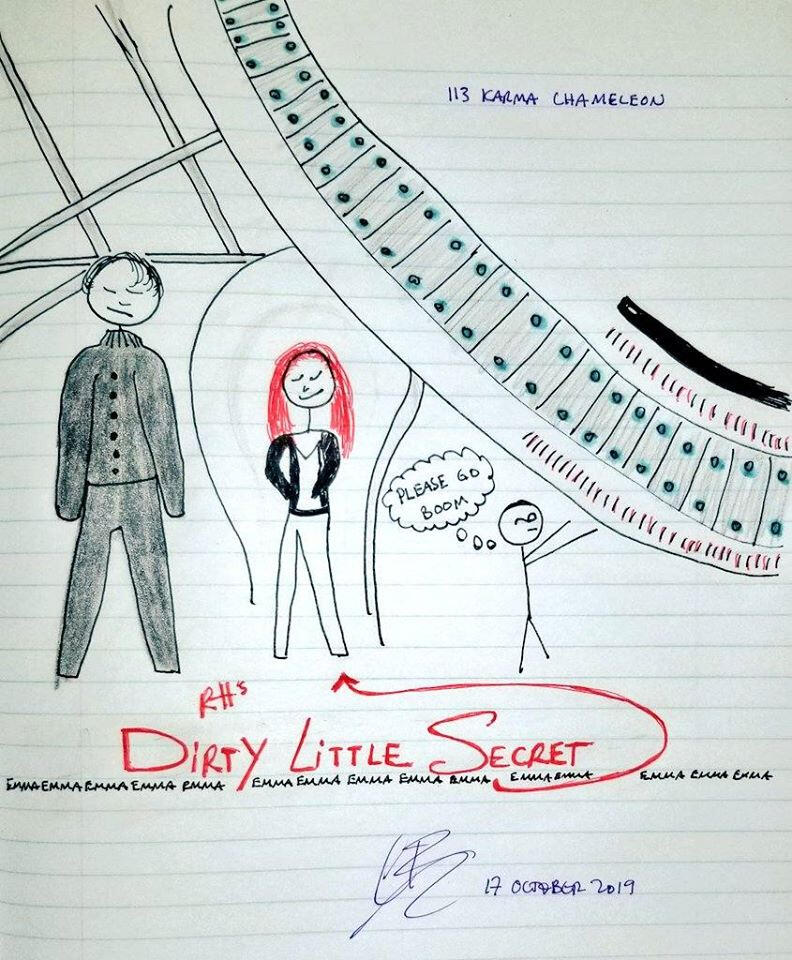 113 KARMA CHAMELEON
PLEASE GO
BOOM
RH's
DIRTY LITTLE SECRET
EMMA EMMA EMMA EMMA EMMA EMMA EMMA EMMA EMMA EMMA EMMA EMMA EMMA EMMA EMMA
17 OCTOBER 2019